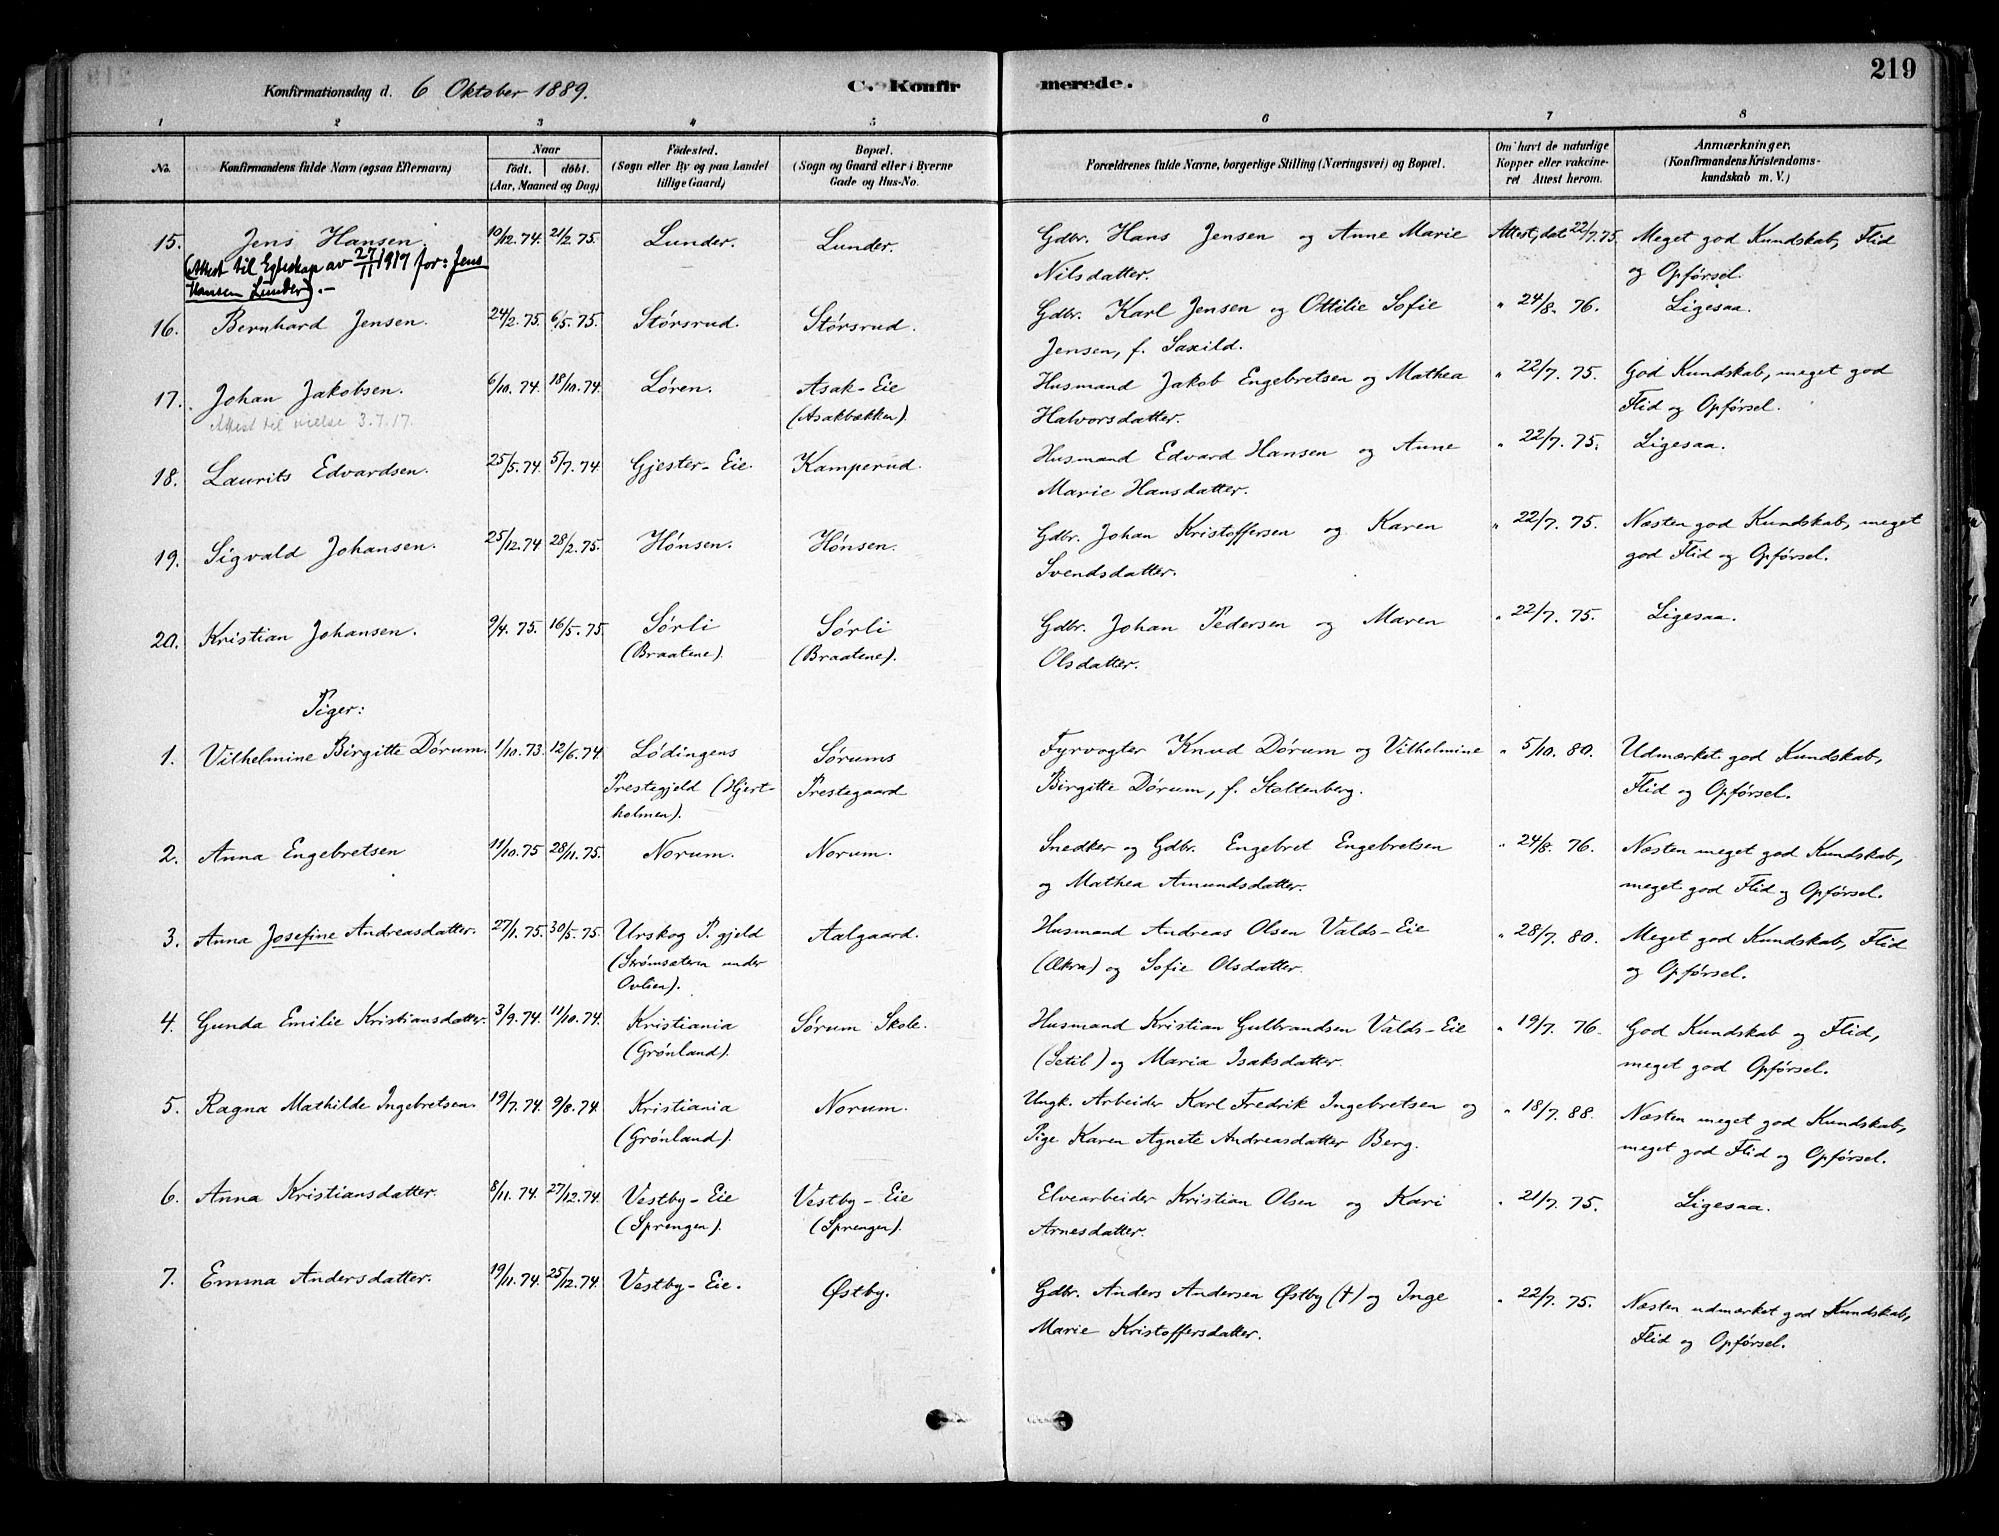 219
Konfirmationsdag d. 6 Oktober 1889.
C. Konfirmerede.
1 2 3 4 5 6 7 8
No.
Konfirmandens fulde Navn (ogsaa Efternavn)
Naar
født. døbt.
(Aar, Maaned og Dag)
Fødested.
(Sogn eller By og paa Landet
tillige Gaard)
Bopæl.
(Sogn og Gaard eller i Byerne
Gade og Hus-No.
Forældrenes fulde Navne, borgerlige Stilling (Næringsvei) og Bopæl.
Om havt de naturlige
Kopper eller vakcine-
ret Attest herom.
Anmærkninger,
(Konfirmandens Kristendoms-
kundskab m. V.)
15. Jens Hansen. 10/12.74. 21/2.75. Lunder. Lunder. Gdbr. Hans Jensen og Anne Marie Attest, dat. 22/7.75. Meget god Kundskab, Flid
(Attest til Egteskap av 27/11 1917 for: Jens
Hansen Lunder).-
Nilsdatter. og Opførsel.
16. Bernhard Jensen. 24/2.75. 6/5.75. Størsrud. Størsrud. Gdbr. Karl Jensen og Ottilie Sofie " 24/8. 76. Ligesaa.
Jensen, f. Saxild.
17. Johan Jakobsen. 6/10.74. 18/10.74. Løren. Asak-Eie Husmand Jakob Engebretsen og Mathea " 22/7. 75. God Kundskab, meget god
Attest til vielse 3.7.17. (Asakbækken). Halvorsdatter. Flid og Opførsel.
18. Laurits Edvardsen. 25/5.74. 5/7.74. Gjester-Eie. Kamperud. Husmand Edvard Hansen og Anne " 22/7. 75. Ligesaa.
Marie Hansdatter.
19. Sigvald Johansen. 25/12.74 28/2.75. Hønsen. Hønsen. Gdbr. Johan Kristoffersen og Karen " 22/7. 75. Næsten god Kundskab, meget
Svendsdatter. god Flid og Opførsel.
20. Kristian Johansen. 9/4.75. 16/5.75. Sørli Sørli Gdbr. Johan Pedersen og Maren " 22/7. 75. Ligesaa.
(Braatene). (Braatene). Olsdatter.
Piger:
1. Vilhelmine Birgitte Dørum. 1/10.73. 12/6.74. Lødingens Sørums Fyrvogter Knud Dørum og Vilhelmine " 5/10. 80. Udmærket god Kundskab,
Prestegjeld (Hjert- Prestegaard Birgitte Dørum, f. Stoltenberg. Flid og Opførsel.
holmen).
2. Anna Engebretsen 11/10.75 28/11.75. Norum. Norum. Snedker og Gdbr. Engebret Engebretsen " 24/8. 76. Næsten meget god Kundskab,
og Mathea Amundsdatter. meget god Flid og Opførsel.
3. Anna Josefine Andreasdatter. 27/1.75. 30/5.75. Urskog P. gjeld Aalgaard. Husmand Andreas Olsen Valds-Eie " 28/7. 80. Meget god Kundskab, Flid
(Strømsæteren under (Ækra) og Sofie Olsdatter. og Opførsel.
Ovlien).
4. Gunda Emilie Kristiansdatter. 3/9.74. 11/10.74. Kristiania Sørum Skole. Husmand Kristian Gulbrandsen Valds-Eie " 19/7. 76. God Kundskab og Flid,
(Grønland). (Setil) og Maria Isaksdatter. meget god Opførsel.
5. Ragna Mathilde Ingebretsen. 19/7.74. 9/8.74. Kristiania Norum. Ungk. Arbeider Karl Fredrik Ingebretsen og " 18/7. 88. Næsten meget god Kundskab,
(Grønland). Pige Karen Agnete Andreasdatter Berg. meget god Flid og Opførsel.
6. Anna Kristiansdatter. 8/11.74. 27/12.74. Vestby-Eie Vestby-Eie Elvearbeider Kristian Olsen og Kari " 21/7. 75. Ligesaa.
(Sprengen). (Sprengen). Arnesdatter.
7. Emma Andersdatter. 19/11.74. 25/12.74. Vestby-Eie. Østby. Gdbr. Anders Andersen Østby (†) og Inge " 22/7. 75. Næsten udmærket god Kundskab,
Marie Kristoffersdatter. Flid og Opførsel.